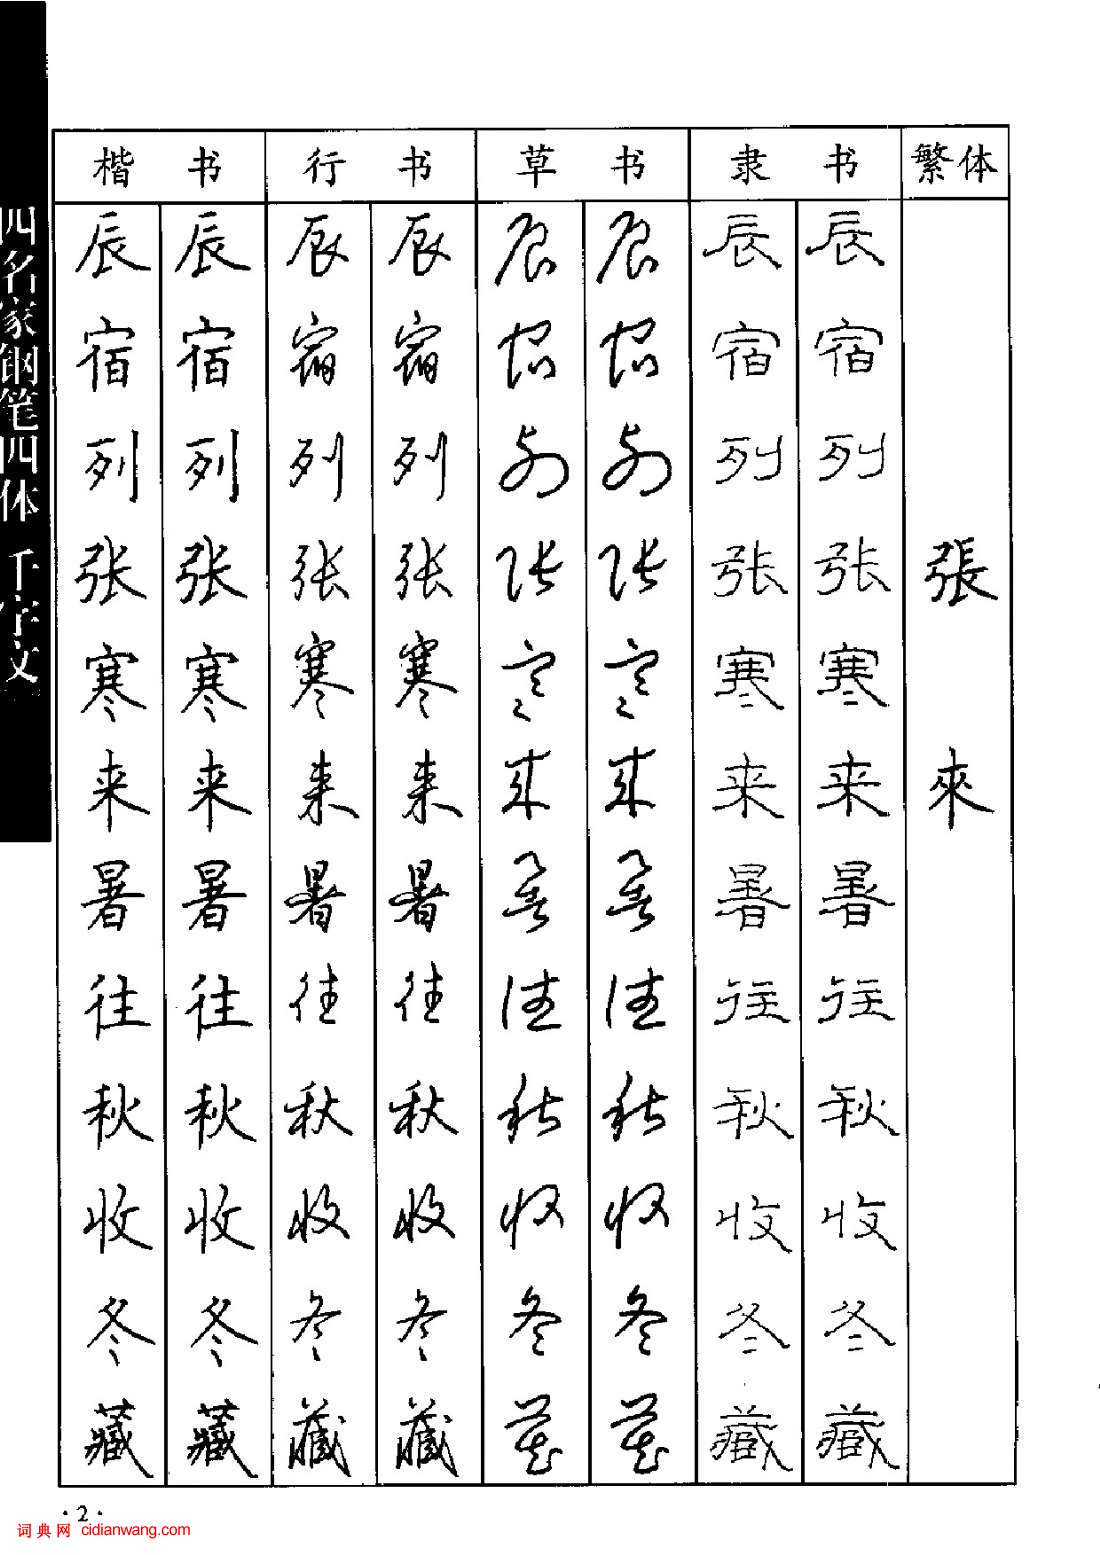 四名家钢笔四体 千字文
楷书 行书 草书 隶书 繁体
辰 辰 辰 辰 辰 辰 辰 辰
宿 宿 宿 宿 宿 宿 宿 宿
列 列 列 列 列 列 列 列
张 张 张 张 张 张 张 张 張
寒 寒 寒 寒 寒 寒 寒 寒
来 来 来 来 来 来 来 来 來
暑 暑 暑 暑 暑 暑 暑 暑
往 往 往 往 往 往 往 往
秋 秋 秋 秋 秋 秋 秋 秋
收 收 收 收 收 收 收 收
冬 冬 冬 冬 冬 冬 冬 冬
藏 藏 藏 藏 藏 藏 藏 藏
·2·
词典网 cidianwang.com